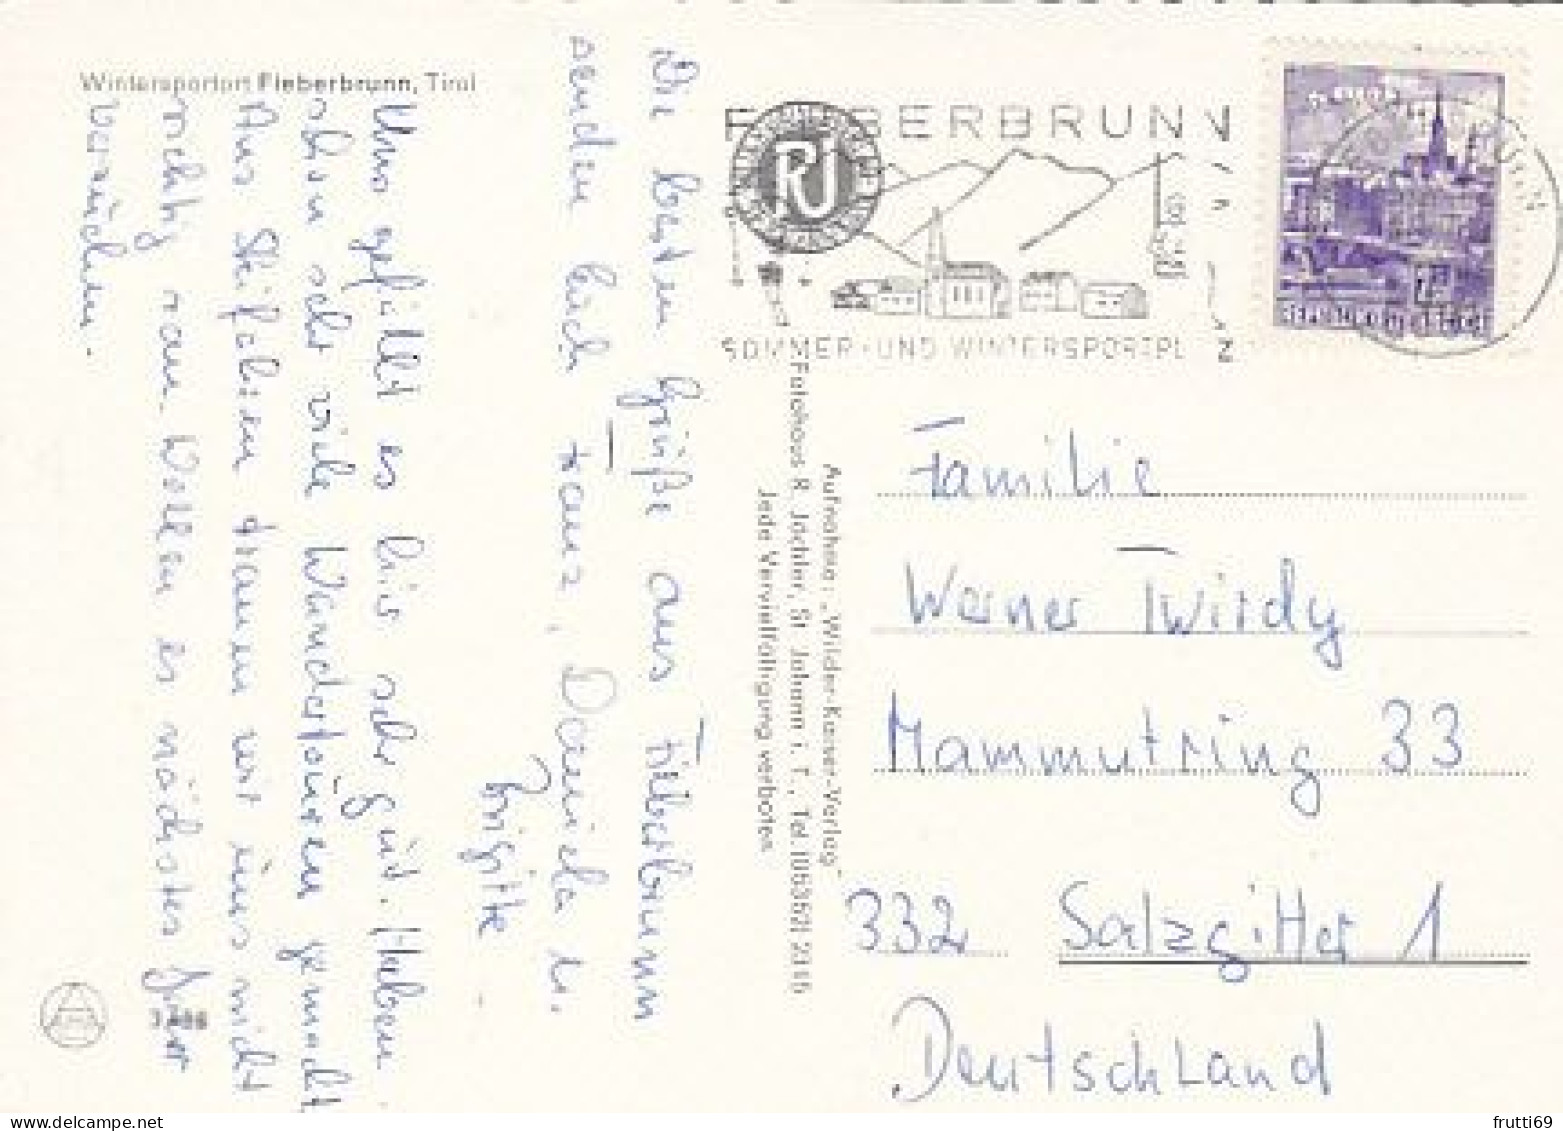 Wintersportort Fieberbrunn, Tirol
Die besten Grüße aus Fieberbrunn
senden Euch Franz, Daniela u.
Brigitte.
Uns gefällt es hier sehr gut. Haben
schon sehr viele Wandertouren gemacht
Ans Skifahren trauen wir uns nicht
richtig ran. Wollen es nächstes Jahr
versuchen.
3488
FIEBERBRUNN
SOMMER- UND WINTERSPORTPL Z
RJ
Aufnahme: „Wilder-Kaiser-Verlag"
Fotohaus R. Jöchler, St. Johann i. T., Tel. (05352) 2316
Jede Vervielfältigung verboten
Familie
Werner Twirdy
Mammutring 33
332 Salzgitter 1
Deutschland
frutti69